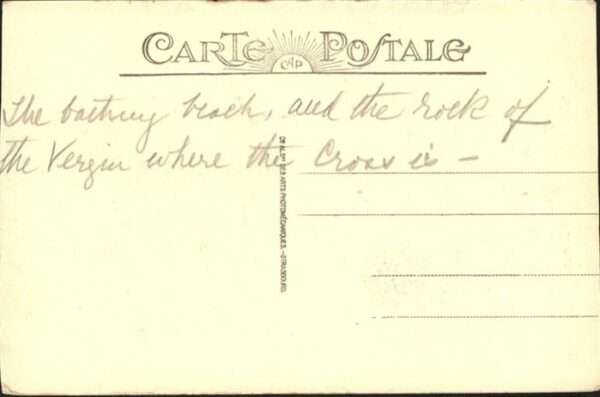 CARTE POSTALE
CAP
The bathing beach, and the rock of
the Vergin where the Cross is –
CIE ALSNE DES ARTS PHOTOMÉCANIQUES - STRASBOURG